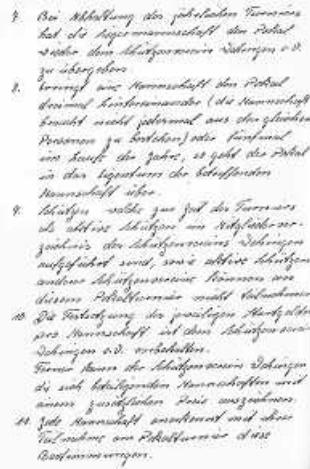 7. Bei Abhaltung des jährlichen Turniers
hat die Siegermannschaft den Pokal
wieder dem Schützenverein Dehingen e.V.
zu übergeben.
8. Erringt eine Mannschaft den Pokal
dreimal hintereinander (die Mannschaft
braucht nicht jedesmal aus den gleichen
Personen zu bestehen) oder fünfmal
im Laufe der Jahre, so geht der Pokal
in das Eigentum der betreffenden
Mannschaft über.
9. Schützen welche zur Zeit des Turniers
als aktive Schützen im Mitgliederver-
zeichnis des Schützenvereins Dehingen
aufgeführt sind, sowie aktive Schützen
anderer Schützenvereine können an
diesem Pokalturnier nicht teilnehmen.
10. Die Festsetzung des jeweiligen Startgeldes
pro Mannschaft ist dem Schützenverein
Dehingen e.V. vorbehalten.
Ferner kann der Schützenverein Dehingen
die sich beteiligenden Mannschaften mit
einem zusätzlichen Preis auszeichnen.
11. Jede Mannschaft anerkennt mit ihrer
Teilnahme am Pokalturnier diese
Bestimmungen.